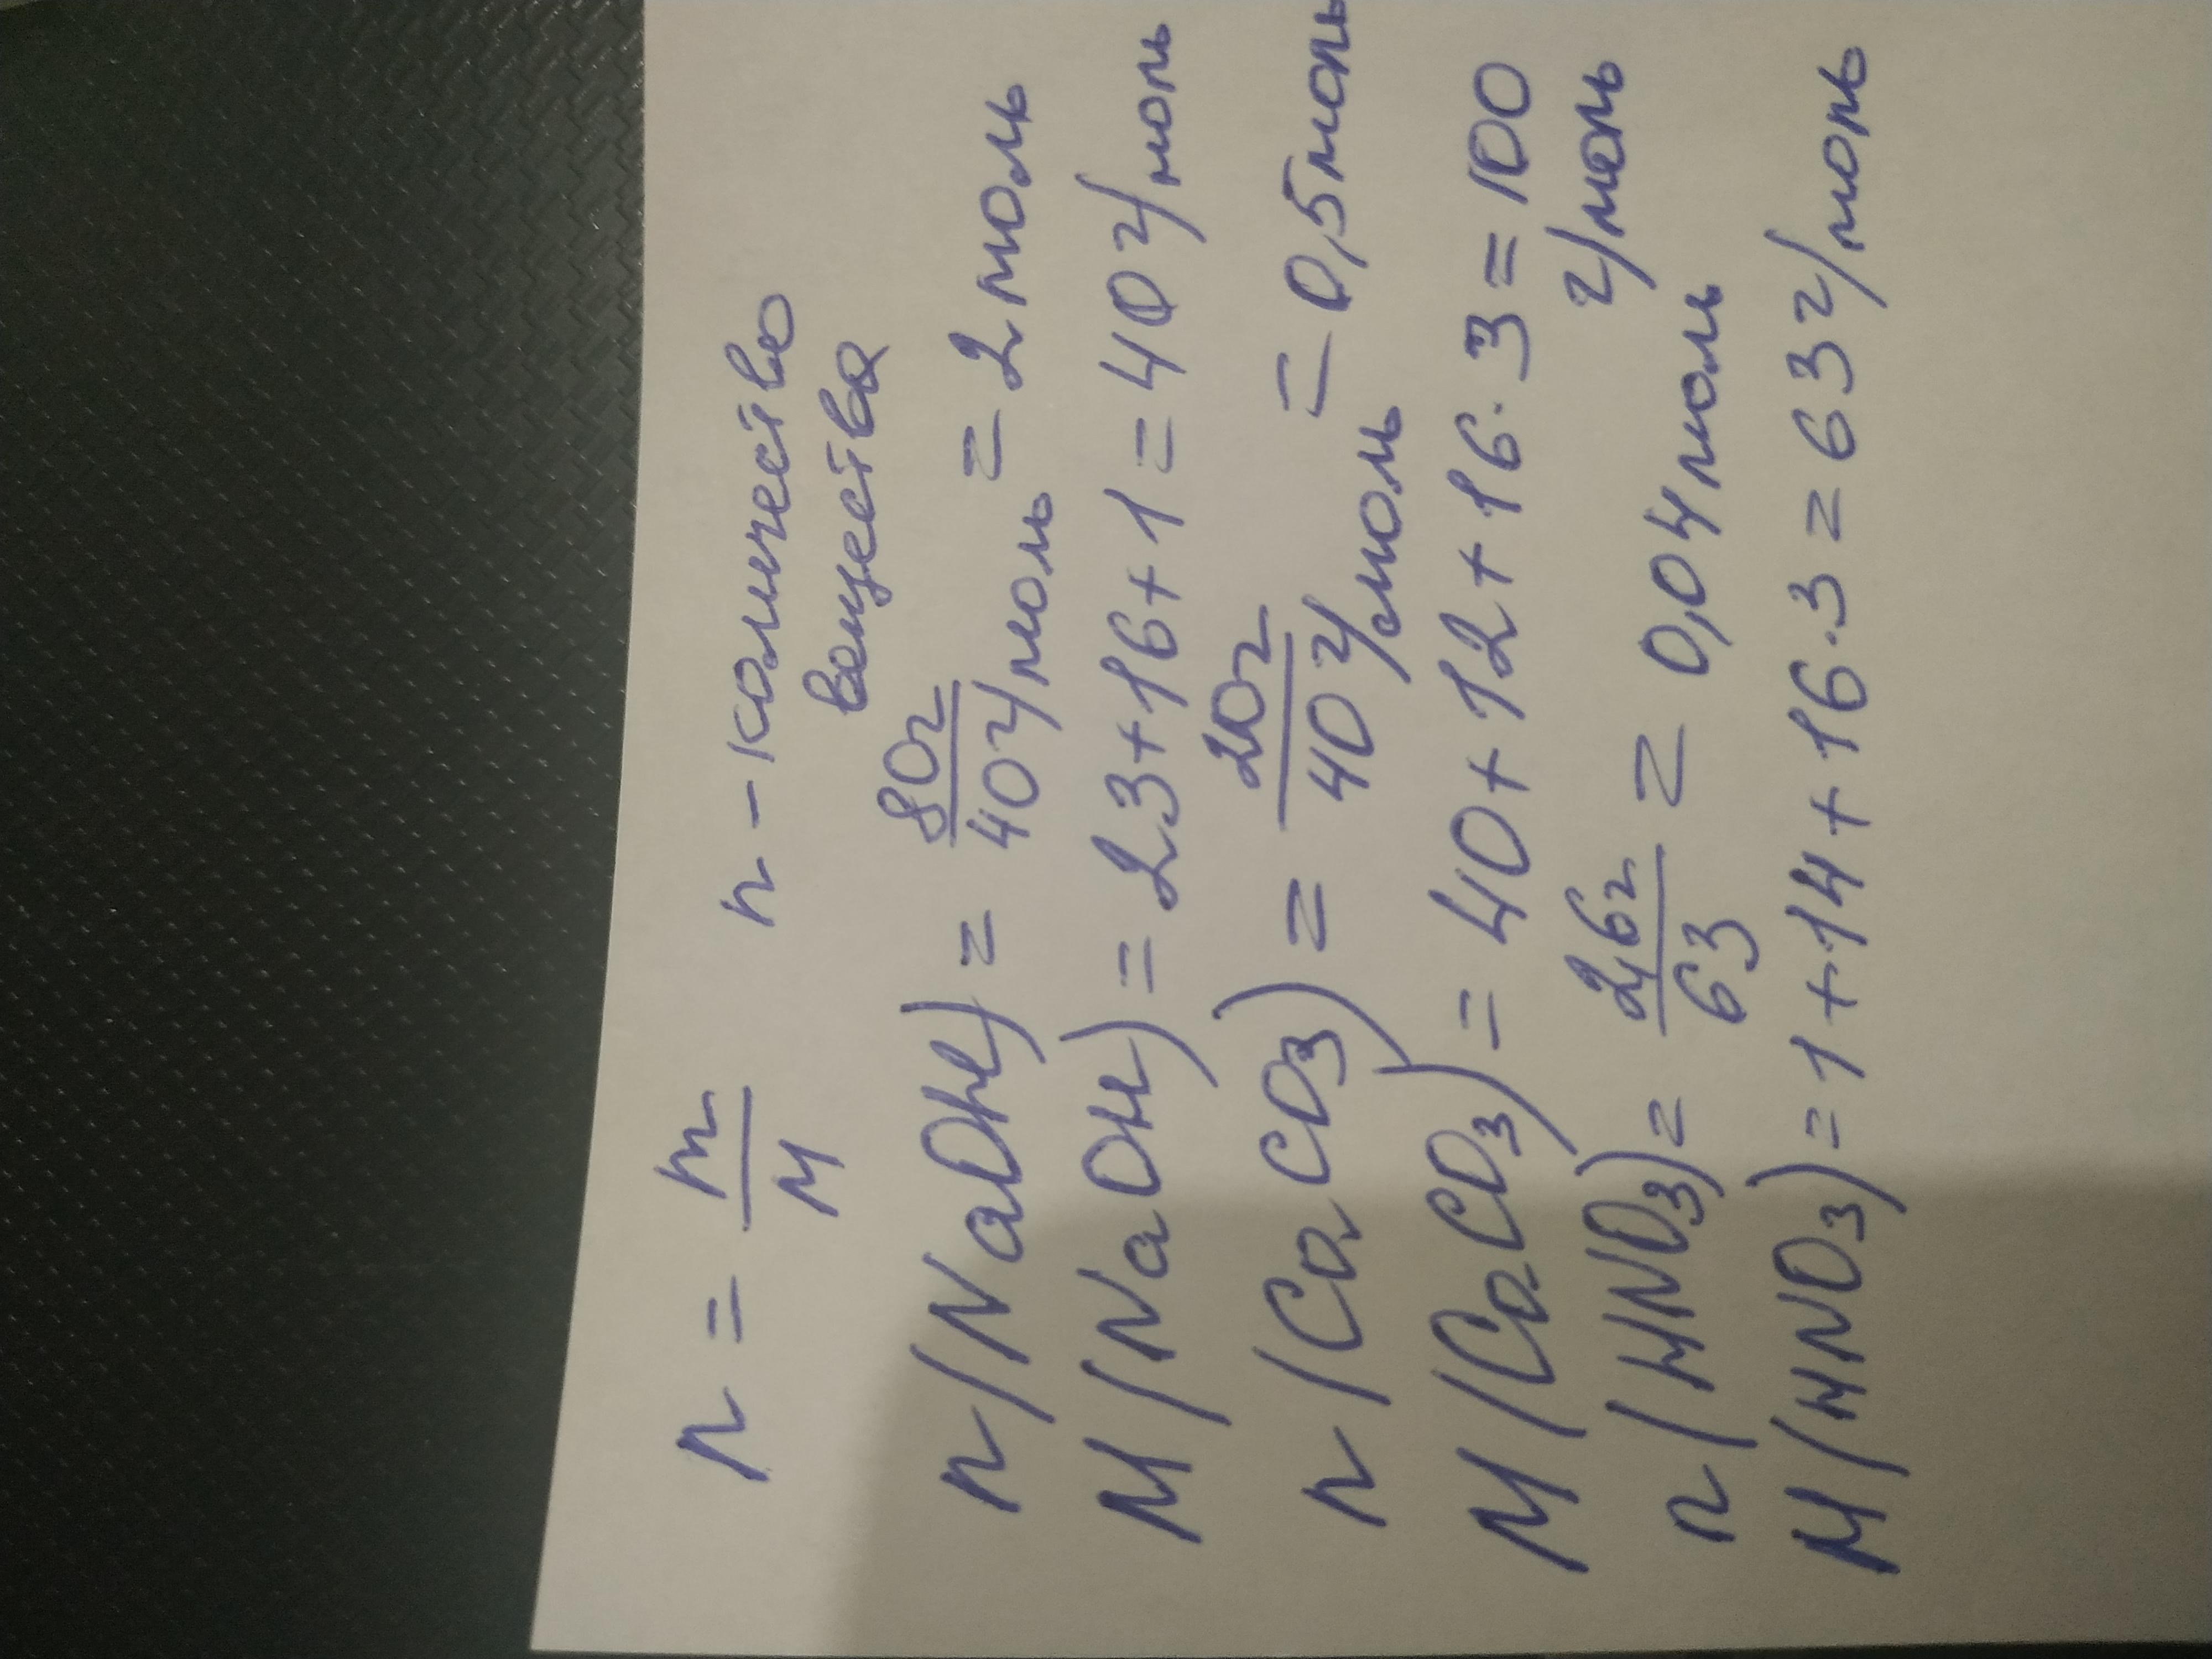 n = m/M n - количество
вещества
n(NaOH) = 80г/40г/моль = 2 моль
M(NaOH) = 23+16+1 = 40г/моль
n(CaCO3) = 20г/40г/моль = 0,5моль
M(CaCO3) = 40+12+16·3=100
г/моль
n(HNO3) = 2,6г/63 = 0,04моль
M(HNO3) = 1+14+16·3=63г/моль